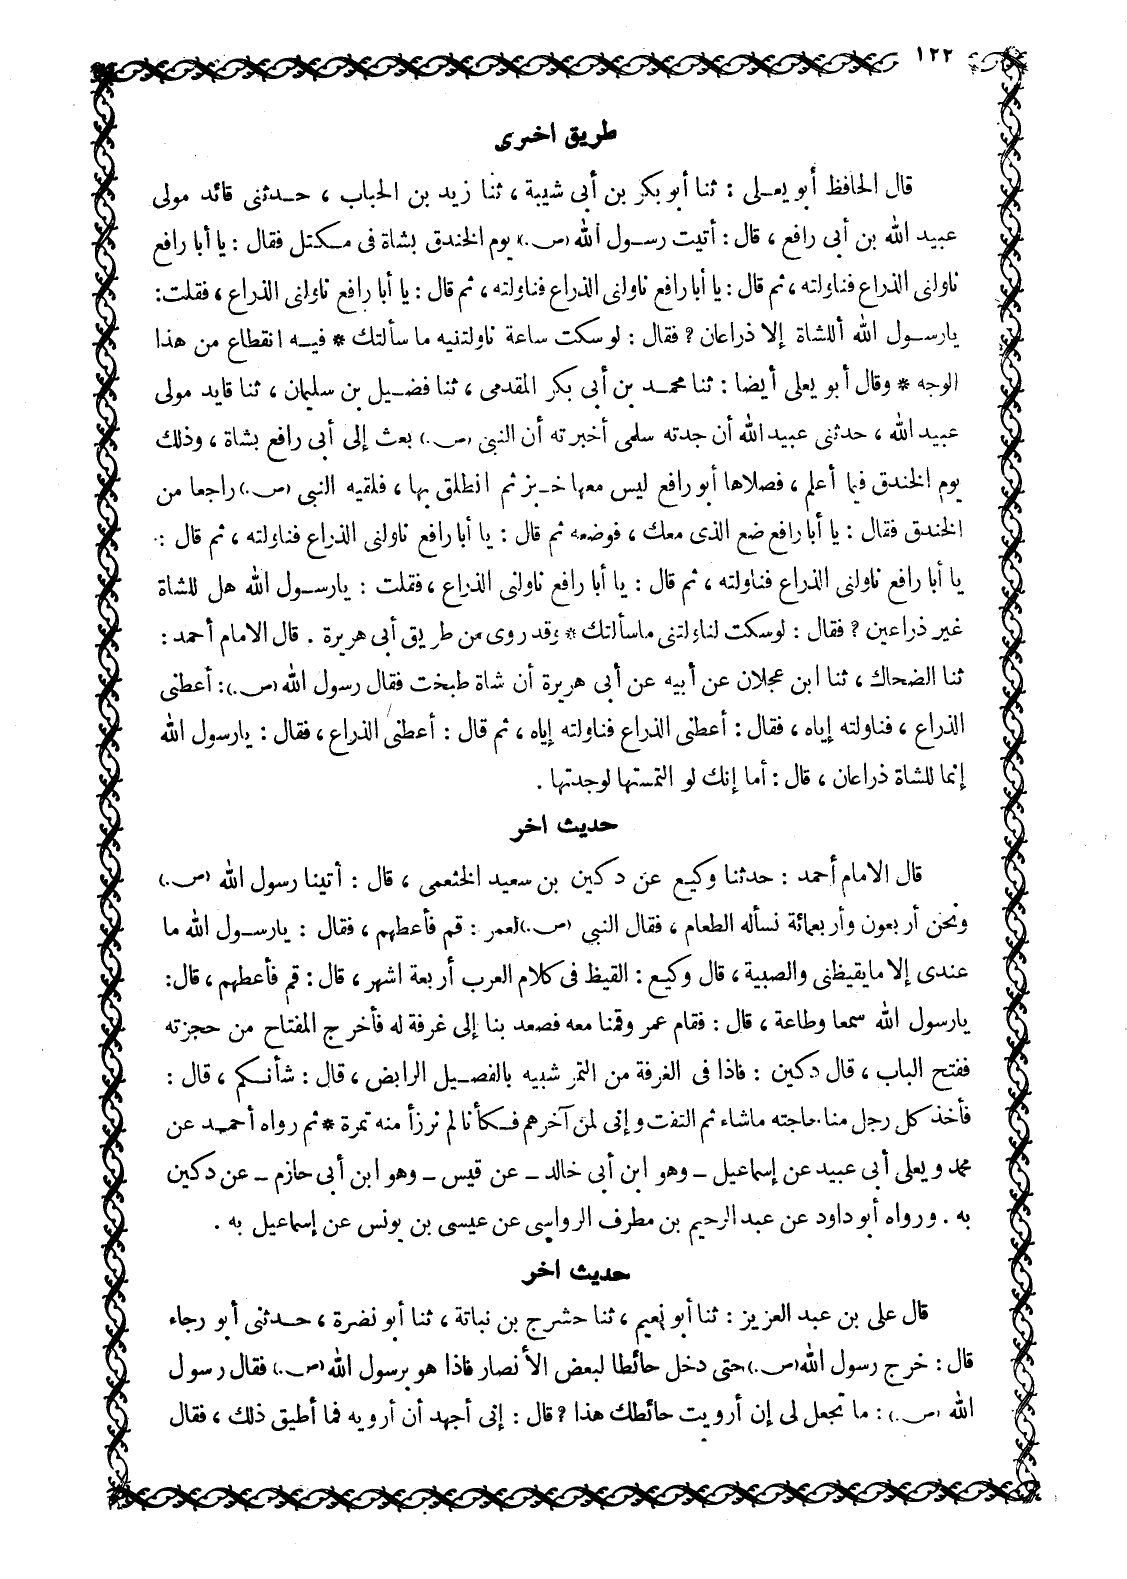 ١٢٢
طريق اخرى
قال الحافظ أبو يعلى : ثنا أبو بكر بن أبى شيبة ، ثنا زيد بن الحباب ، حدثنى قائد مولى
عبيد الله بن أبى رافع ، قال : أتيت رسول الله (ص.) يوم الخندق بشاة فى مكتل فقال : يا أبا رافع
ناولنى الذراع فناولته ، ثم قال : يا أبا رافع ناولنى الذراع فناولته ، ثم قال : يا أبا رافع ناولنى الذراع ، فقلت :
يارسول الله أللشاة إلا ذراعان ? فقال : لو سكت ساعة ناولتنيه ما سألتك * فيه انقطاع من هذا
الوجه * وقال أبو يعلى أيضا : ثنا محمد بن أبى بكر المقدمى ، ثنا فضيل بن سليمان ، ثنا قايد مولى
عبيد الله ، حدثنى عبيد الله أن جدته سلمى أخبرته أن النبى (ص.) بعث إلى أبى رافع بشاة ، وذلك
يوم الخندق فيما أعلم ، فصلاها أبو رافع ليس معها خبز ثم انطلق بها ، فلقيه النبى (ص.) راجعا من
الخندق فقال : يا أبا رافع ضع الذى معك ، فوضعه ثم قال : يا أبا رافع ناولنى الذراع فناولته ، ثم قال :
يا أبا رافع ناولنى الذراع فناولته ، ثم قال : يا أبا رافع ناولنى الذراع ، فقلت : يارسول الله هل للشاة
غير ذراعين ? فقال : لوسكت لناولتنى ماسألتك * وقد روى من طريق أبى هريرة . قال الامام أحمد :
ثنا الضحاك ، ثنا ابن عجلان عن أبيه عن أبى هريرة أن شاة طبخت فقال رسول الله (ص.) : أعطنى
الذراع ، فناولته إياه ، فقال : أعطنى الذراع فناولته إياه ، ثم قال : أعطنى الذراع ، فقال : يارسول الله
إنما للشاة ذراعان ، قال : أما إنك لو التمستها لوجدتها .
حديث اخر
قال الامام أحمد : حدثنا وكيع عن دكين بن سعيد الخثعمى ، قال : أتينا رسول الله (ص.)
ونحن أربعون وأربعمائة نسأله الطعام ، فقال النبي (ص.) لعمر : قم فأعطهم ، فقال : يارسول الله ما
عندى إلا مايقيظنى والصبية ، قال وكيع : القيظ فى كلام العرب أربعة اشهر ، قال : قم فأعطهم ، قال :
يارسول الله سمعا وطاعة ، قال : فقام عمر وقمنا معه فصعد بنا إلى غرفة له فأخرج المفتاح من حجزته
ففتح الباب ، قال دكين : فاذا فى الغرفة من التمر شبيه بالفصيل الرابض ، قال : شأنكم ، قال :
فأخذ كل رجل منا حاجته ماشاء ثم التفت وإنى لمن آخرهم فكأنا لم نرزأ منه تمرة * ثم رواه أحمد عن
محمد ويعلى أبى عبيد عن إسماعيل – وهو ابن أبي خالد – عن قيس – وهو ابن أبى حازم – عن دكين
به . ورواه أبو داود عن عبد الرحيم بن مطرف الرواسى عن عيسى بن يونس عن إسماعيل به .
حديث اخر
قال على بن عبد العزيز : ثنا أبو نعيم ، ثنا حشرج بن نباتة ، ثنا أبو نضرة ، حدثنى أبو رجاء
قال : خرج رسول الله (ص.) حتى دخل حائطا لبعض الأنصار فاذا هو برسول الله (ص.) فقال رسول
الله (ص.) : ما تجعل لى إن أرويت حائطك هذا ? قال : إنى أجهد أن أرويه فما أطيق ذلك ، فقال